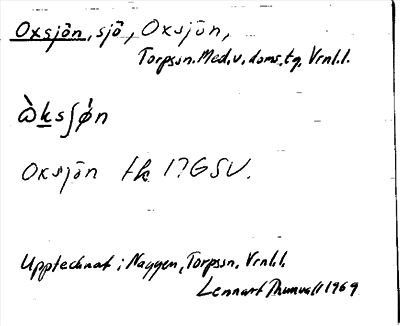 Oxsjön, sjö, Oxsjön,
Torpssn. Med. v. doms. tg. Vrnl. l.
ὼksʃǿn
Oxsjön tk 17G SV.
Upptecknat i Naggen, Torpssn, Vrnl. l.
Lennart Thunvall 1969